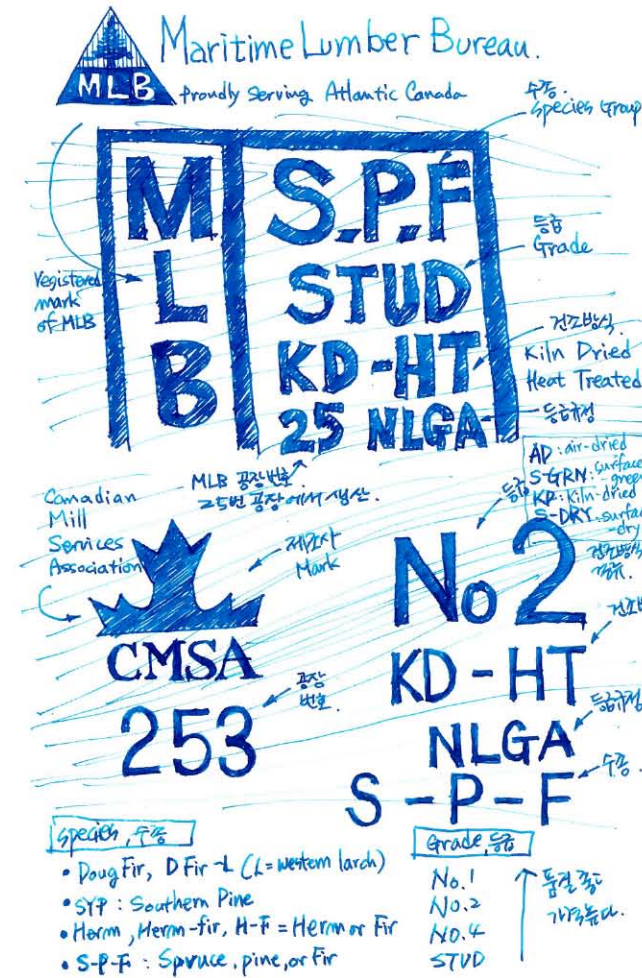 MLB
Maritime Lumber Bureau.
Proudly Serving Atlantic Canada
수종.
Species Group
M
L
B
S.P.F
STUD
KD-HT
25 NLGA
등급
Grade
registered
mark
of MLB
건조방식.
Kiln Dried
Heat Treated
등급규정
MLB 공장번호.
25번 공장에서 생산.
AD : air-dried
S-GRN : surface
green
KD : kiln-dried
S-DRY : surfac
-dry
건조방식
Canadian
Mill
Services
Association
제재사
Mark
CMSA
253
공장
번호.
등급
No 2
KD-HT
NLGA
S-P-F
건조방
등급규정
수종.
Species, 수종
• Doug Fir, D Fir-L (L=western larch)
• SYP : Southern Pine
• Herm, Herm-fir, H-F = Herm or Fir
• S-P-F : Spruce, pine, or Fir
Grade, 등급
No.1
No.2
No.4
STUD
품질 좋고
가격높다.